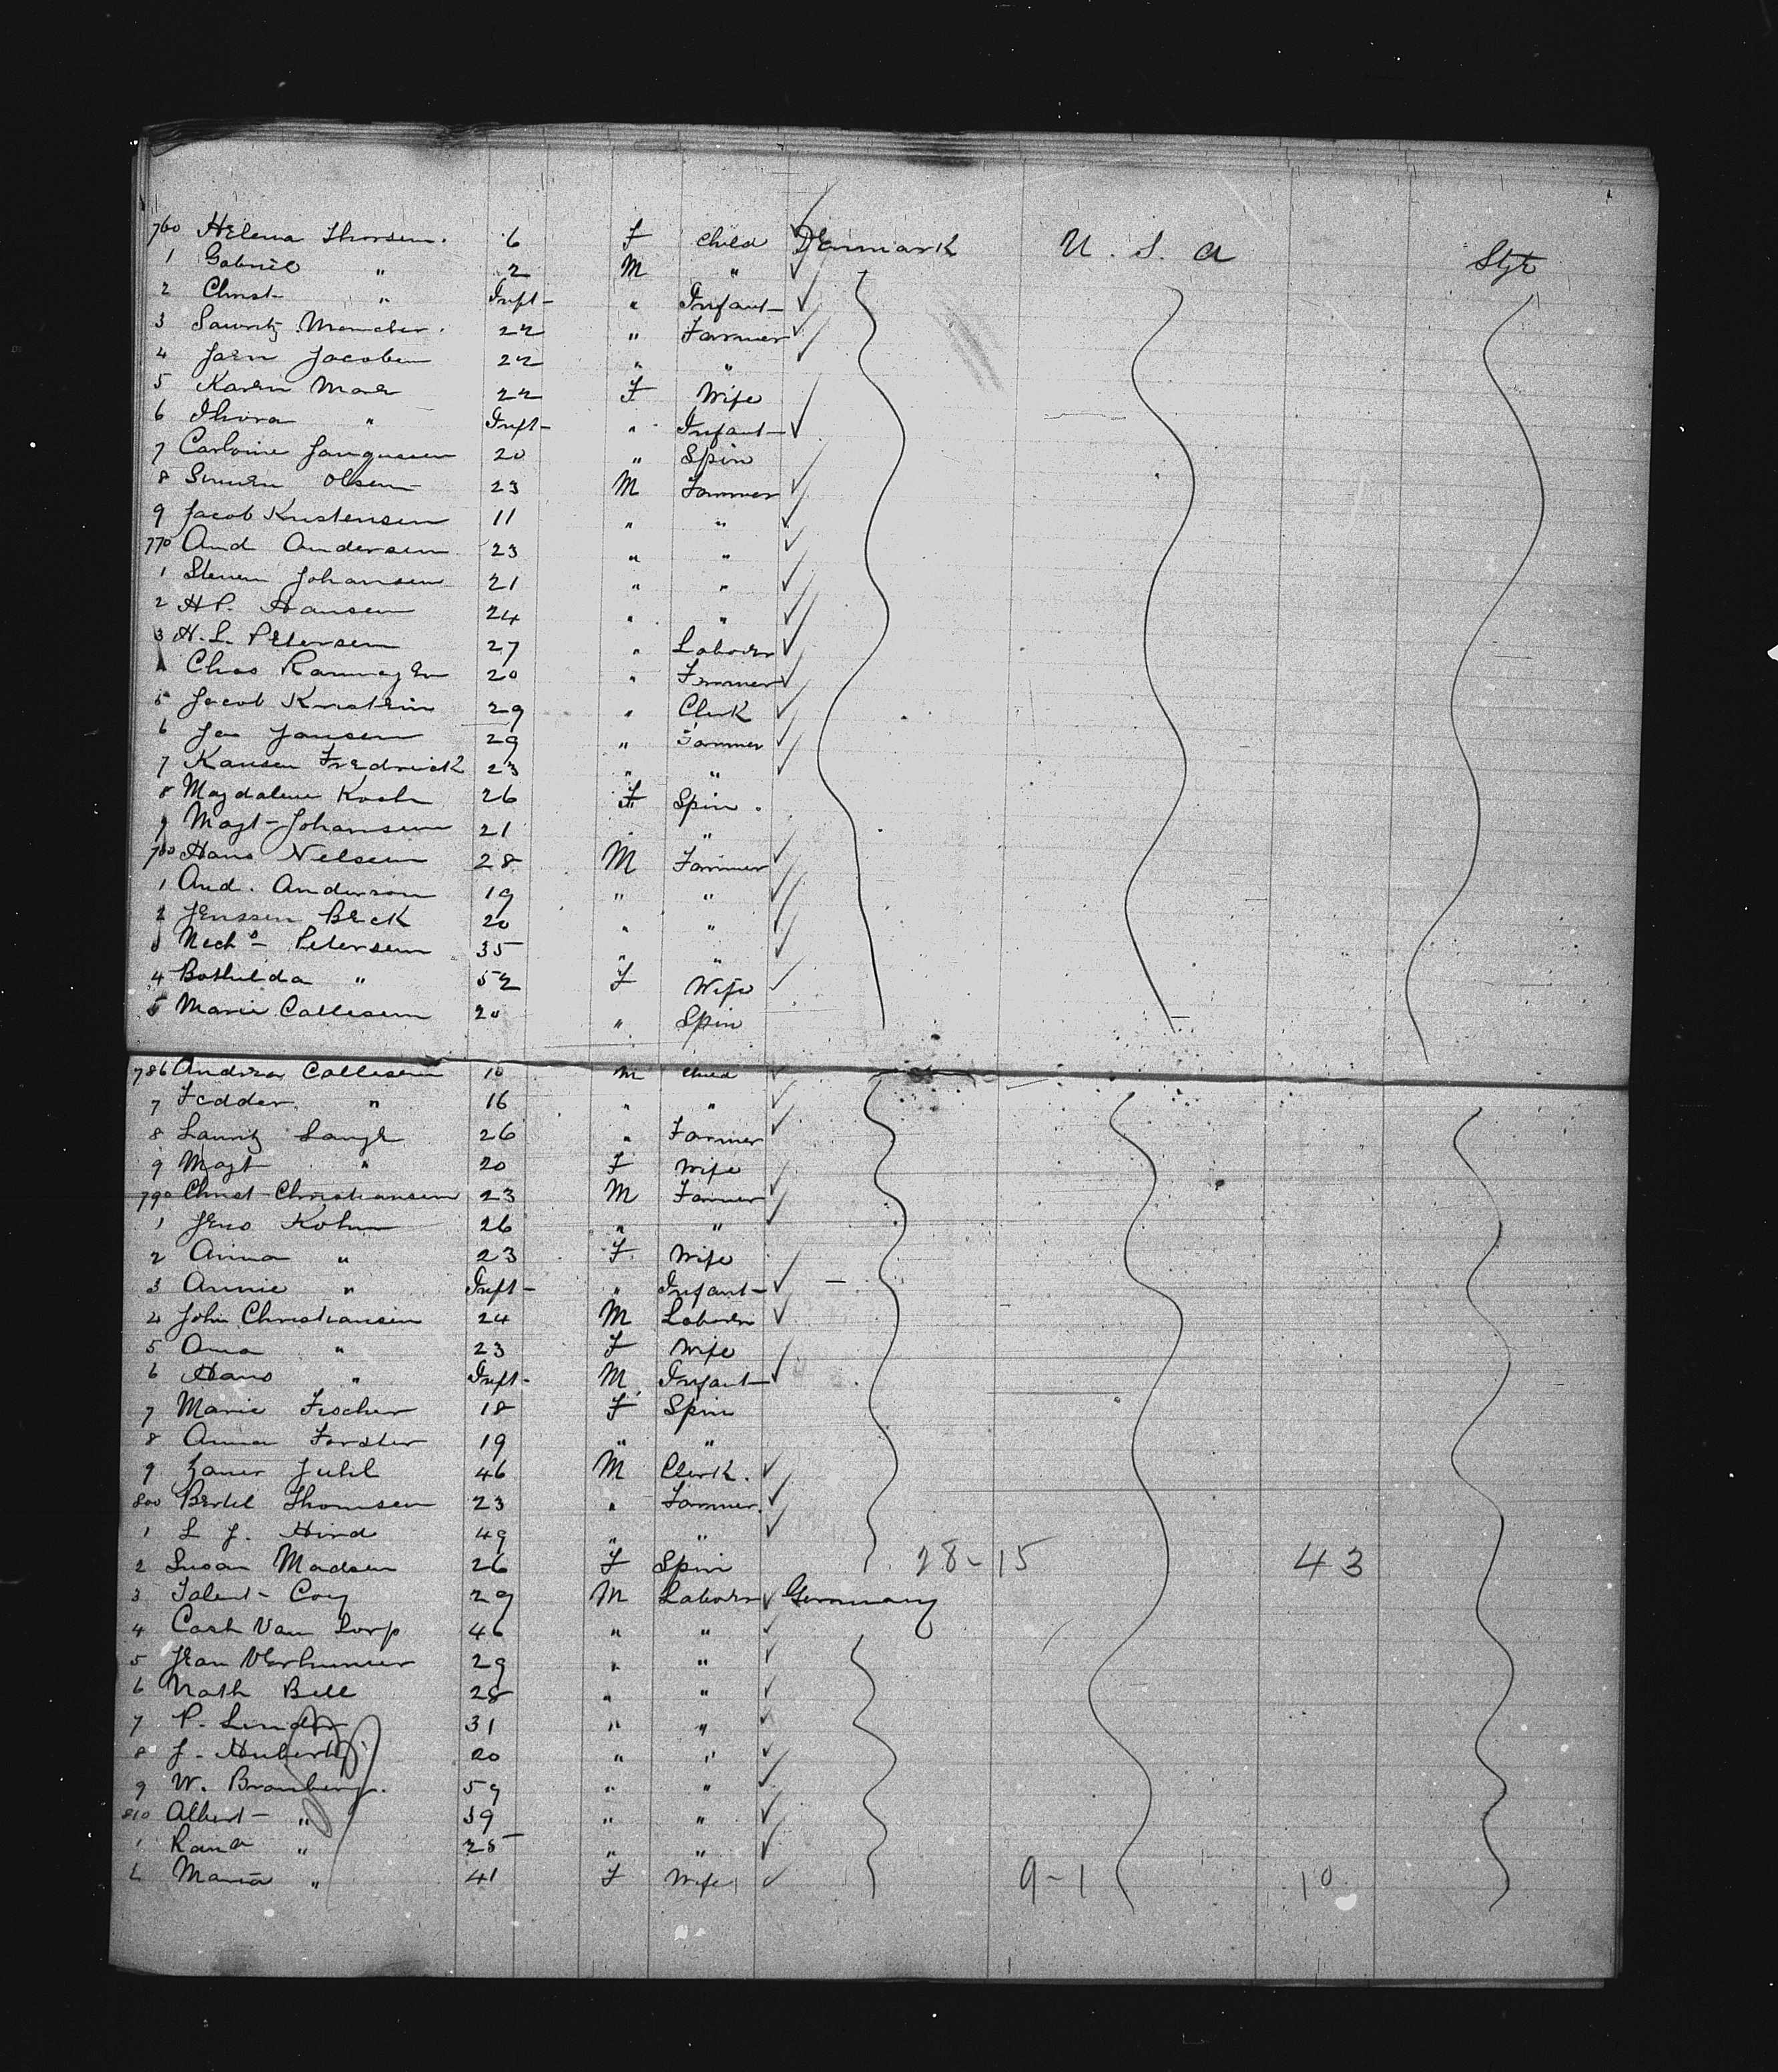 760 Helena Thorsen. 6 F Child Denmark U. S. A Stge
1 Gabriel " 2 M "
2 Christ " Inft " Infant
3 Sauritz 22 " Farmer
4 Jorn Jacobsen 22 " "
5 Karen Mar 22 F Wife
6 Thora " Inft " Infant
7 20 " Spin
8 Olsen 23 M Farmer
9 Jacob Kristensen 11 " "
770 And Andersen 23 " "
1 Steven Johansen 21 " "
2 H P. Hansen 24 " "
3 H. L. Petersen 27 " Laborer
4 Chas 20 " Farmer
5 Jacob 29 " Clerk
6 Jas Jansen 29 " Farmer
7 Kansen Fredrick 23 " "
8 Magdalene Koch 26 F Spin.
9 Magt Johansen 21 " "
780 Hans Nelsen 28 M Farmer
1 And. Anderson 19 " "
2 Jenssen Beck 20 " "
3 Petersen 35 " "
4 Bothilda " 52 F Wife
5 Marie Callesen 20 " Spin
786 Andrea Callesen 10 M Child
7 Fedder " 16 " "
8 Lauritz Lange 26 " Farmer
9 Magt " 20 F Wife
790 Christ Christiansen 23 M Farmer
1 Jens Kohn 26 " "
2 Anna " 23 F Wife
3 Annie " Inft " Infant
4 John Christiansen 24 M Laborer
5 Ana " 23 F Wife
6 Hans " Inft M Infant
7 Marie Fischer 18 F Spin
8 Anna Forster 19 " "
9 Juhl 46 M Clerk.
800 Bertel Thomsen 23 " Farmer.
1 L J. Hind 49 " "
2 Susan Madsen 26 F Spin 28-15 43
3 Talent Coy 29 M Laborer Germany
4 Van Lorp 46 " "
5 Jean 29 " "
6 Nath Bell 28 " "
7 P. Linder 31 " "
8 J. Huberts 20 " "
9 W. Bramberg. 59 " "
810 Albert " 39 " "
1 " 25 " "
2 Maria " 41 F Wife 9-1 10